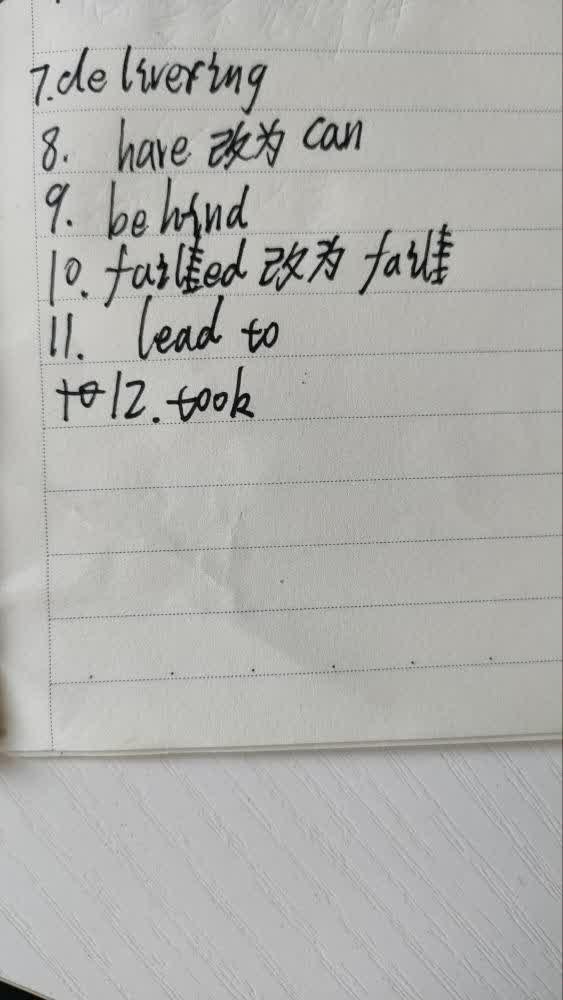 7. delivering
8. have 改为 can
9. behind
10. failed 改为 fail
11. lead to
to 12. took